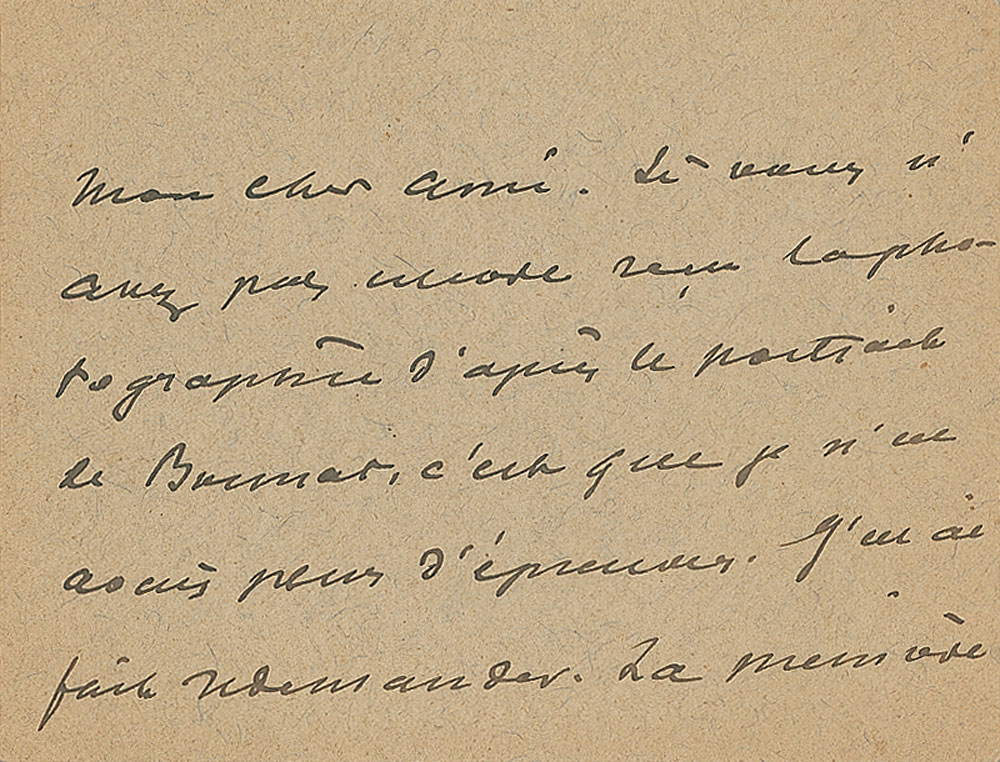 Mon cher ami. Si vous n'
avez pas encore reçu la pho-
tographie d'après le portrait
de Bonnat, c'est que je n'en
avais plus d'épreuves. J'en ai
fait redemander. La première